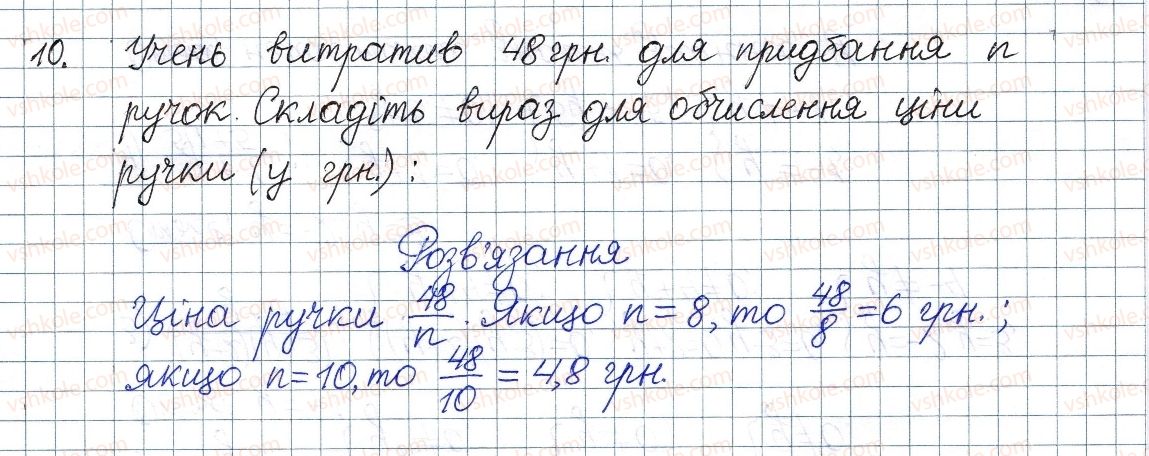 10. Учень витратив 48 грн. для придбання n
ручок. Складіть вираз для обчислення ціни
ручки (у грн.):
Розв'язання
Ціна ручки 48/n. Якщо n = 8, то 48/8 = 6 грн.;
якщо n = 10, то 48/10 = 4,8 грн.